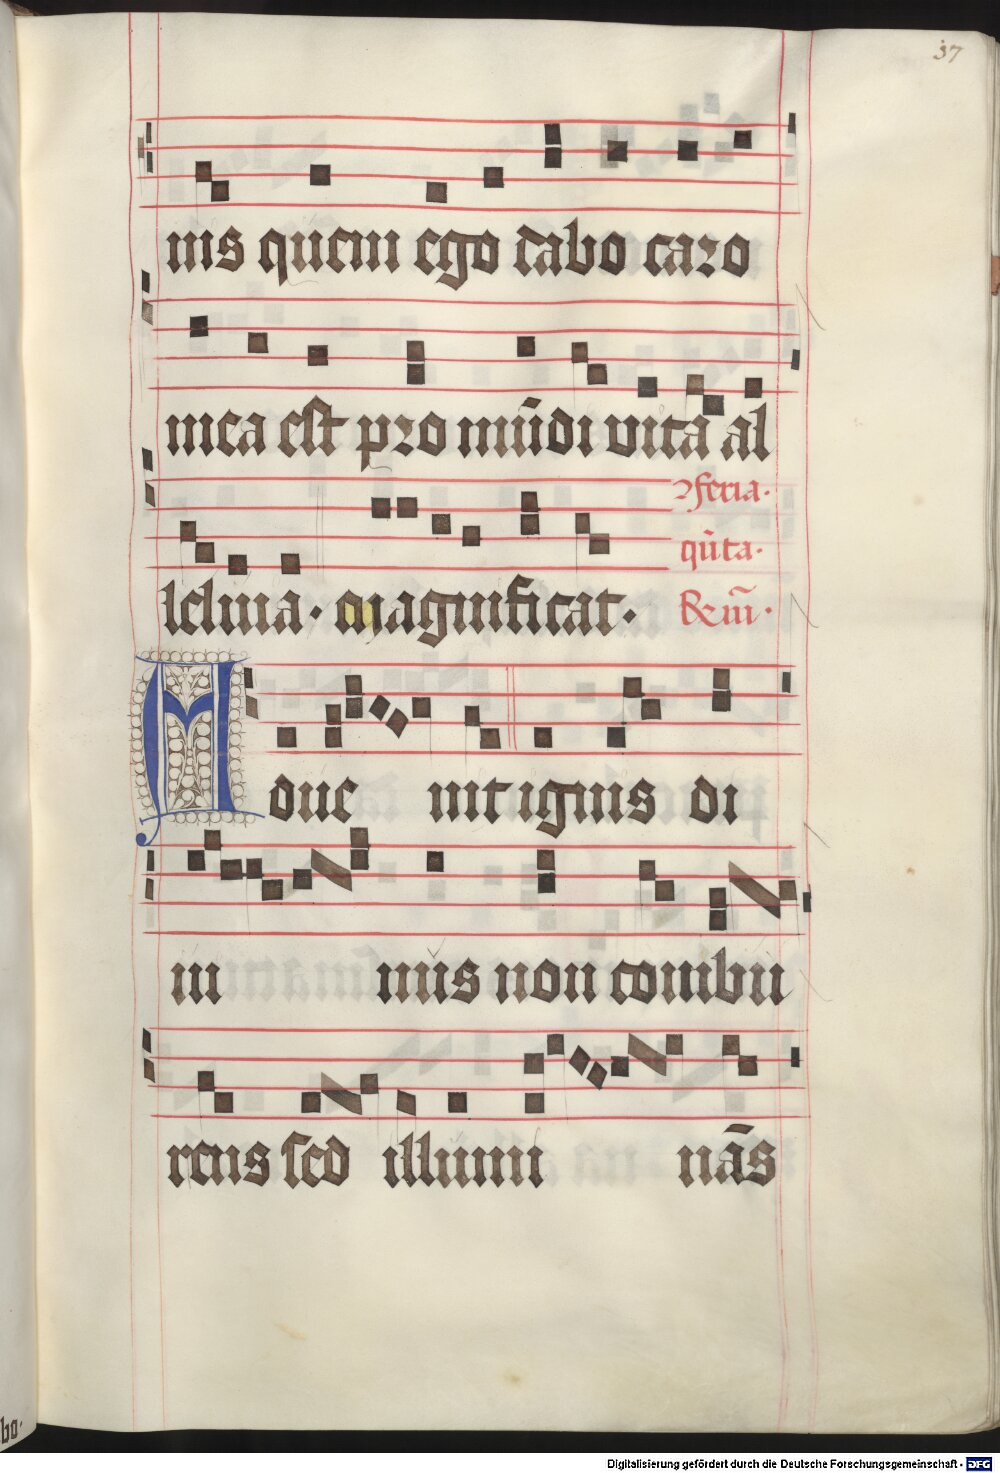 37
nis quem ego dabo caro
mea est pro mũdi vita al
leluia · magnificat ·
⁊ feria ·
qũta ·
R̃m̃ ·
Adue nit ignis di
ui nus non combu
rens sed illumi nãs
bo ·
Digitalisierung gefördert durch die Deutsche Forschungsgemeinschaft - DFG